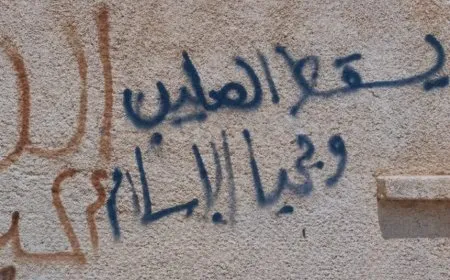 يسقط الصليب
ويحيا الإسلام